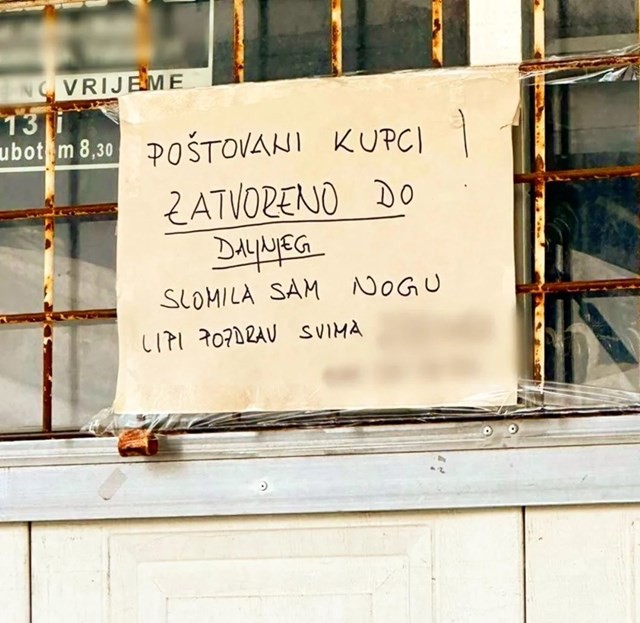 NO VRIJEME
13 i
ubotom 8,30
POŠTOVANI KUPCI !
ZATVORENO DO
DALJNJEG
SLOMILA SAM NOGU
LIPI POZDRAV SVIMA